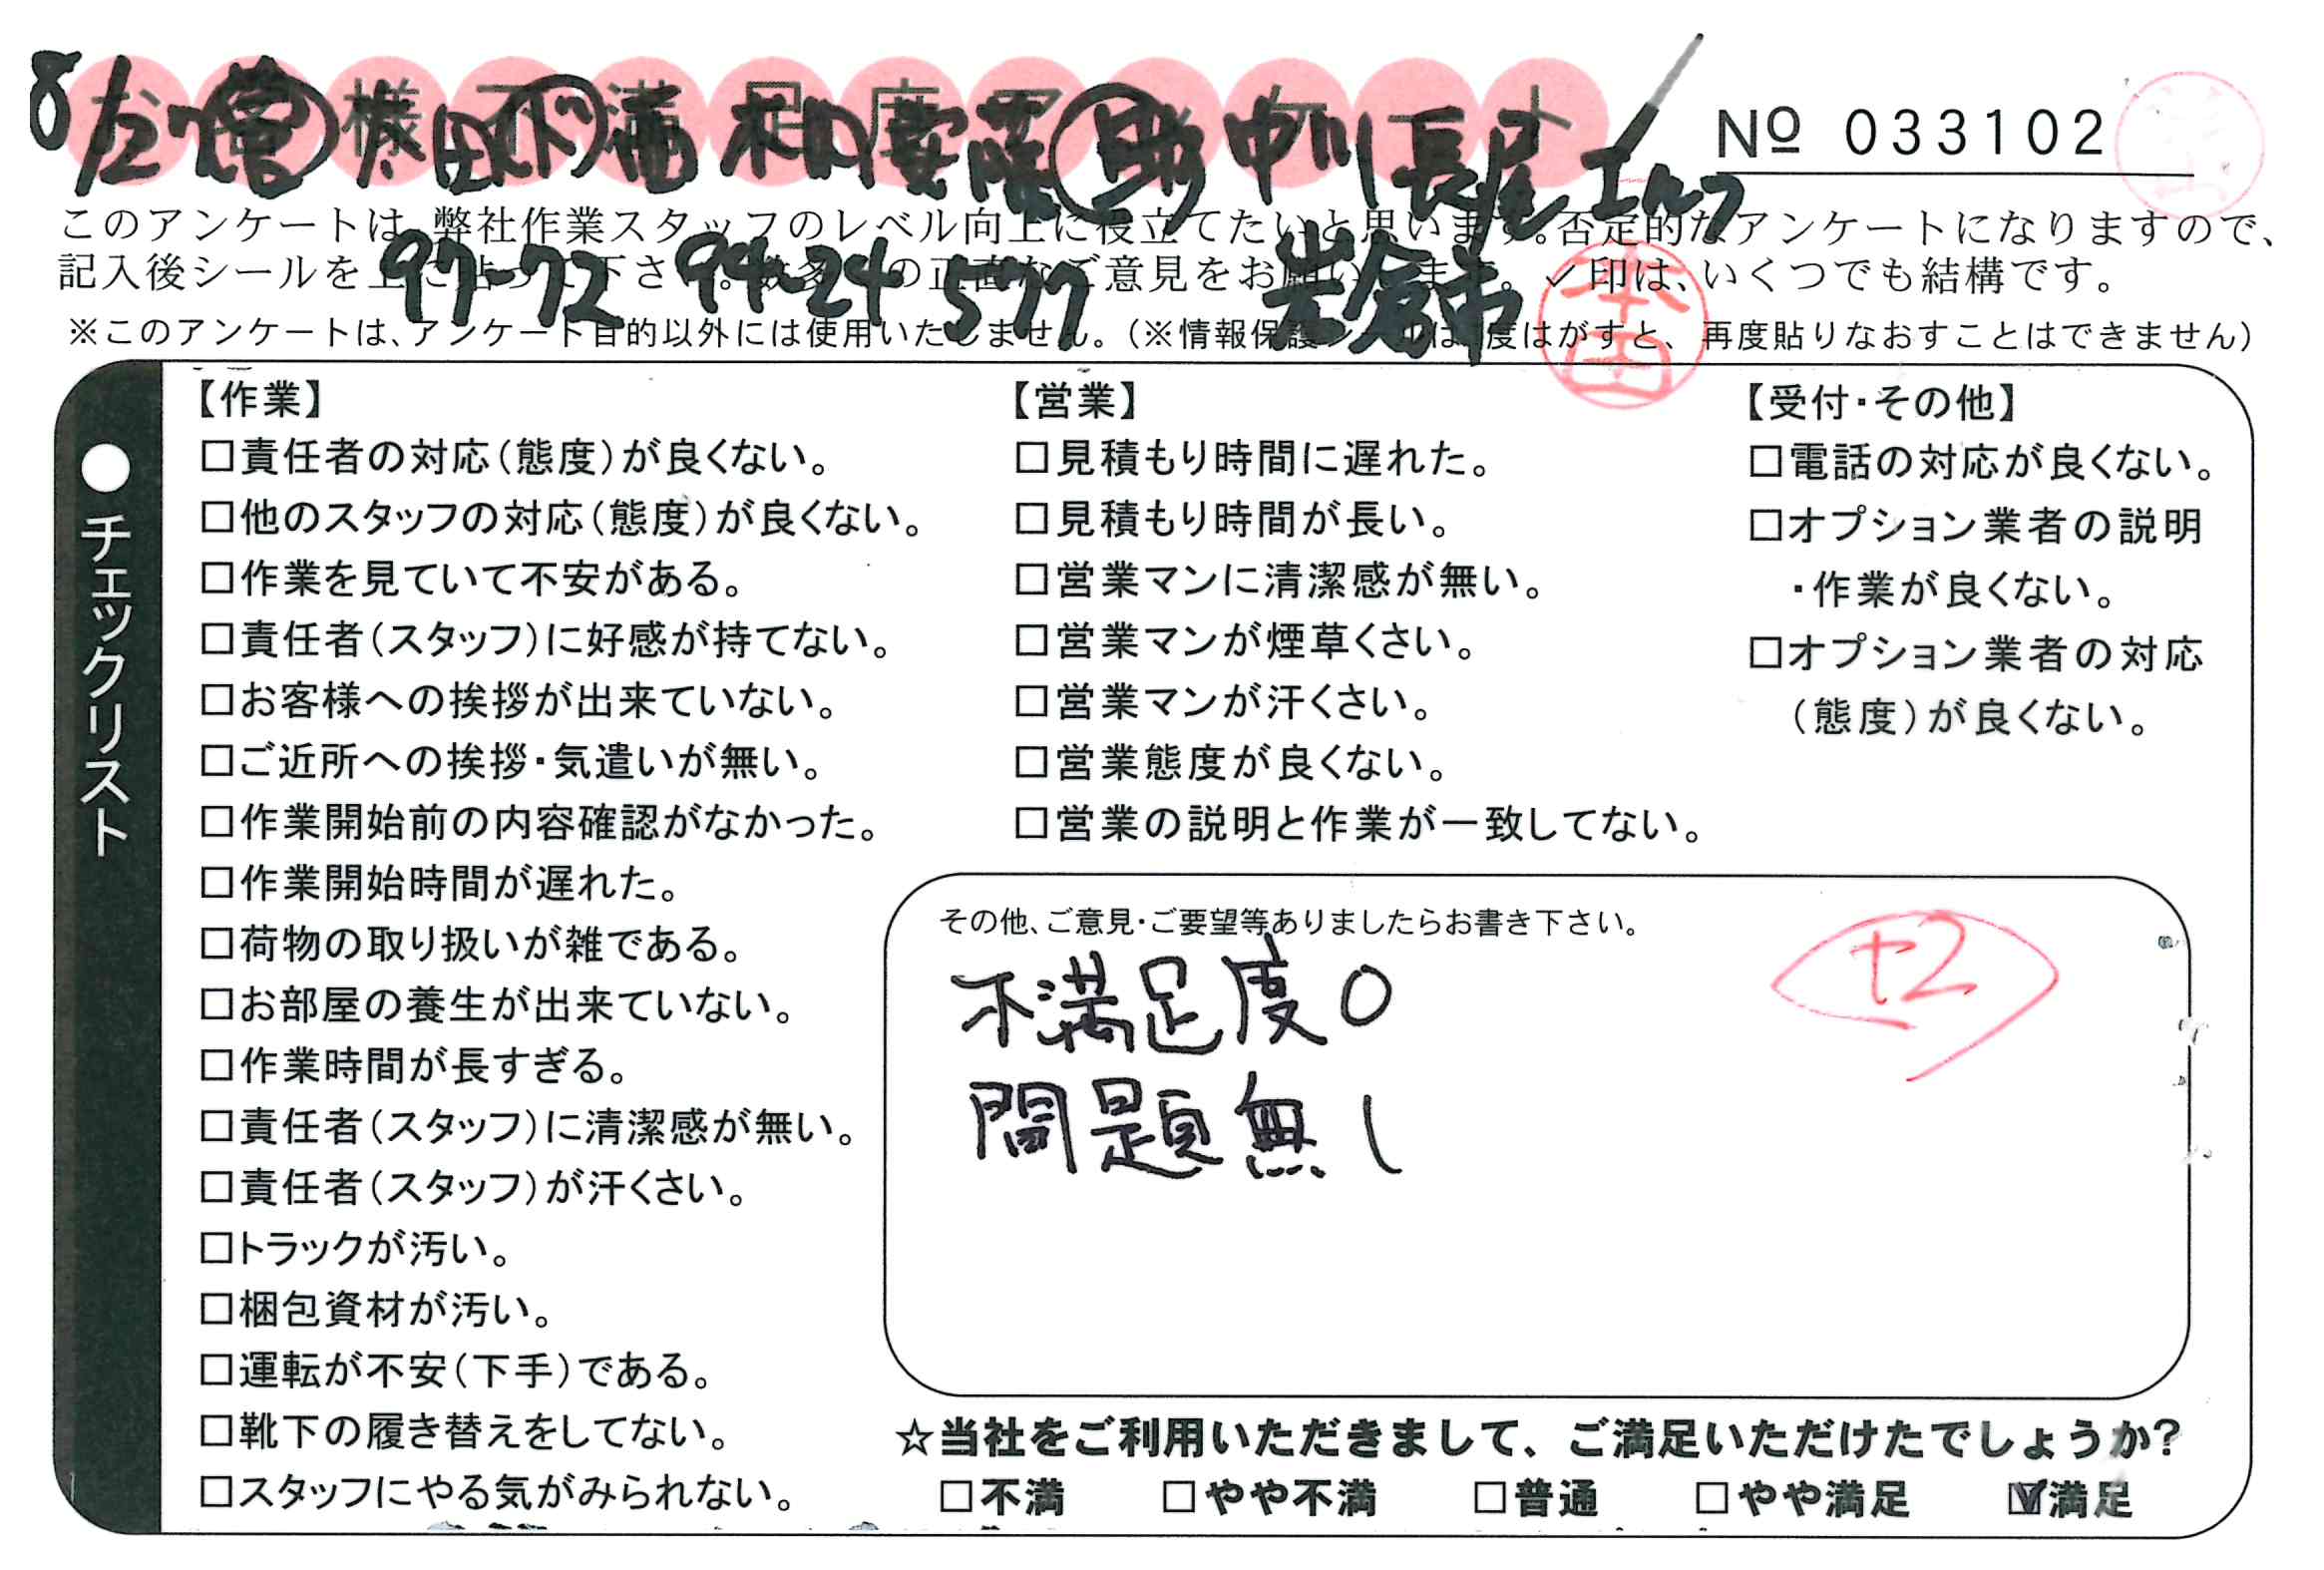 お客様不満足度アンケート
8/27 営 太田 下 浦 木村 安藤 助 中川 長尾 エルフ
№ 033102
このアンケートは、弊社作業スタッフのレベル向上に役立てたいと思います。否定的なアンケートになりますので、
97-72 94-24 577 岩倉市
記入後シールを上に貼って下さい。数多くの正直なご意見をお願いします。✓印は、いくつでも結構です。
本田
※このアンケートは、アンケート目的以外には使用いたしません。(※情報保護シールは1度はがすと、再度貼りなおすことはできません)
●チェックリスト
【作業】
□責任者の対応(態度)が良くない。
□他のスタッフの対応(態度)が良くない。
□作業を見ていて不安がある。
□責任者(スタッフ)に好感が持てない。
□お客様への挨拶が出来ていない。
□ご近所への挨拶・気遣いが無い。
□作業開始前の内容確認がなかった。
□作業開始時間が遅れた。
□荷物の取り扱いが雑である。
□お部屋の養生が出来ていない。
□作業時間が長すぎる。
□責任者(スタッフ)に清潔感が無い。
□責任者(スタッフ)が汗くさい。
□トラックが汚い。
□梱包資材が汚い。
□運転が不安(下手)である。
□靴下の履き替えをしてない。
□スタッフにやる気がみられない。
【営業】
□見積もり時間に遅れた。
□見積もり時間が長い。
□営業マンに清潔感が無い。
□営業マンが煙草くさい。
□営業マンが汗くさい。
□営業態度が良くない。
□営業の説明と作業が一致してない。
【受付・その他】
□電話の対応が良くない。
□オプション業者の説明
・作業が良くない。
□オプション業者の対応
(態度)が良くない。
その他、ご意見・ご要望等ありましたらお書き下さい。
+2
不満足度0
問題無し
☆当社をご利用いただきまして、ご満足いただけたでしょうか?
□不満 □やや不満 □普通 □やや満足 ☑満足